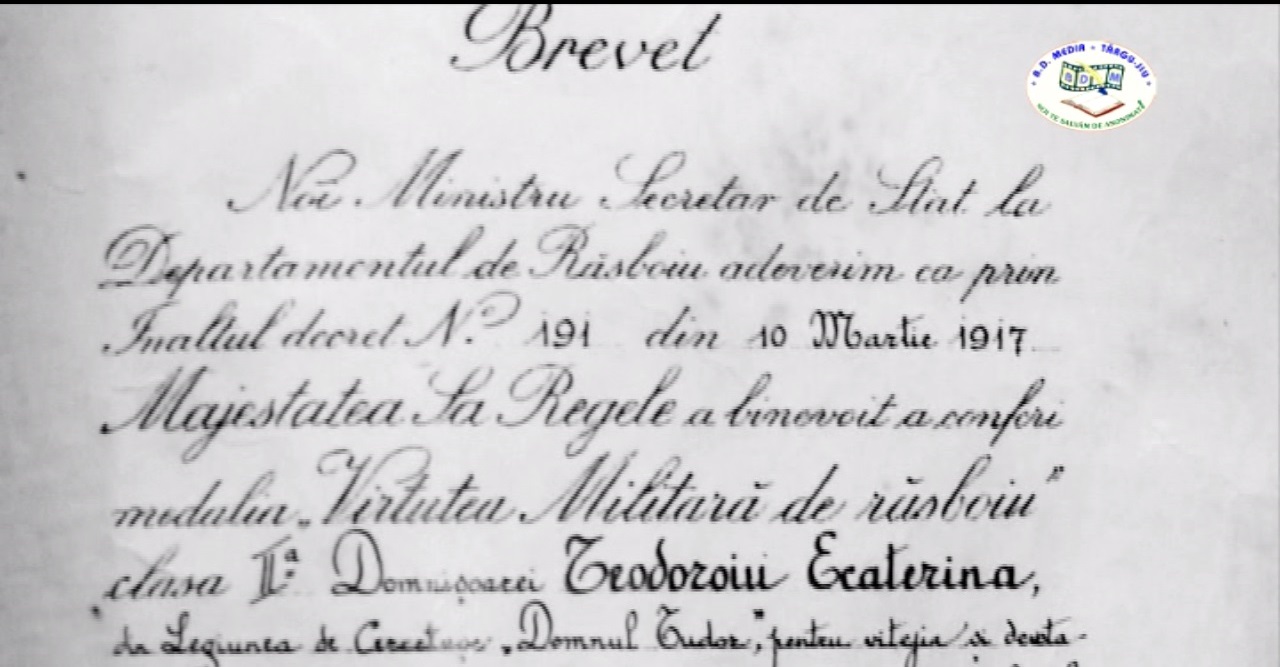 Brevet
B.D. MEDIA - TÂRGU-JIU
B D M
NOI TE SALVĂM DE ANONIMAT!
Noi Ministru Secretar de Stat la
Departamentul de Răsboiu adeverim ca prin
Inaltul decret No. 191 din 10 Martie 1917
Majestatea Sa Regele a binevoit a conferi
medalia „Virtutea Militară de răsboiu"
clasa IIª Domnișoarei Teodoroiu Ecaterina,
da Legiunea de Cercetași „Domnul Tudor," pentru vitejia și devota-